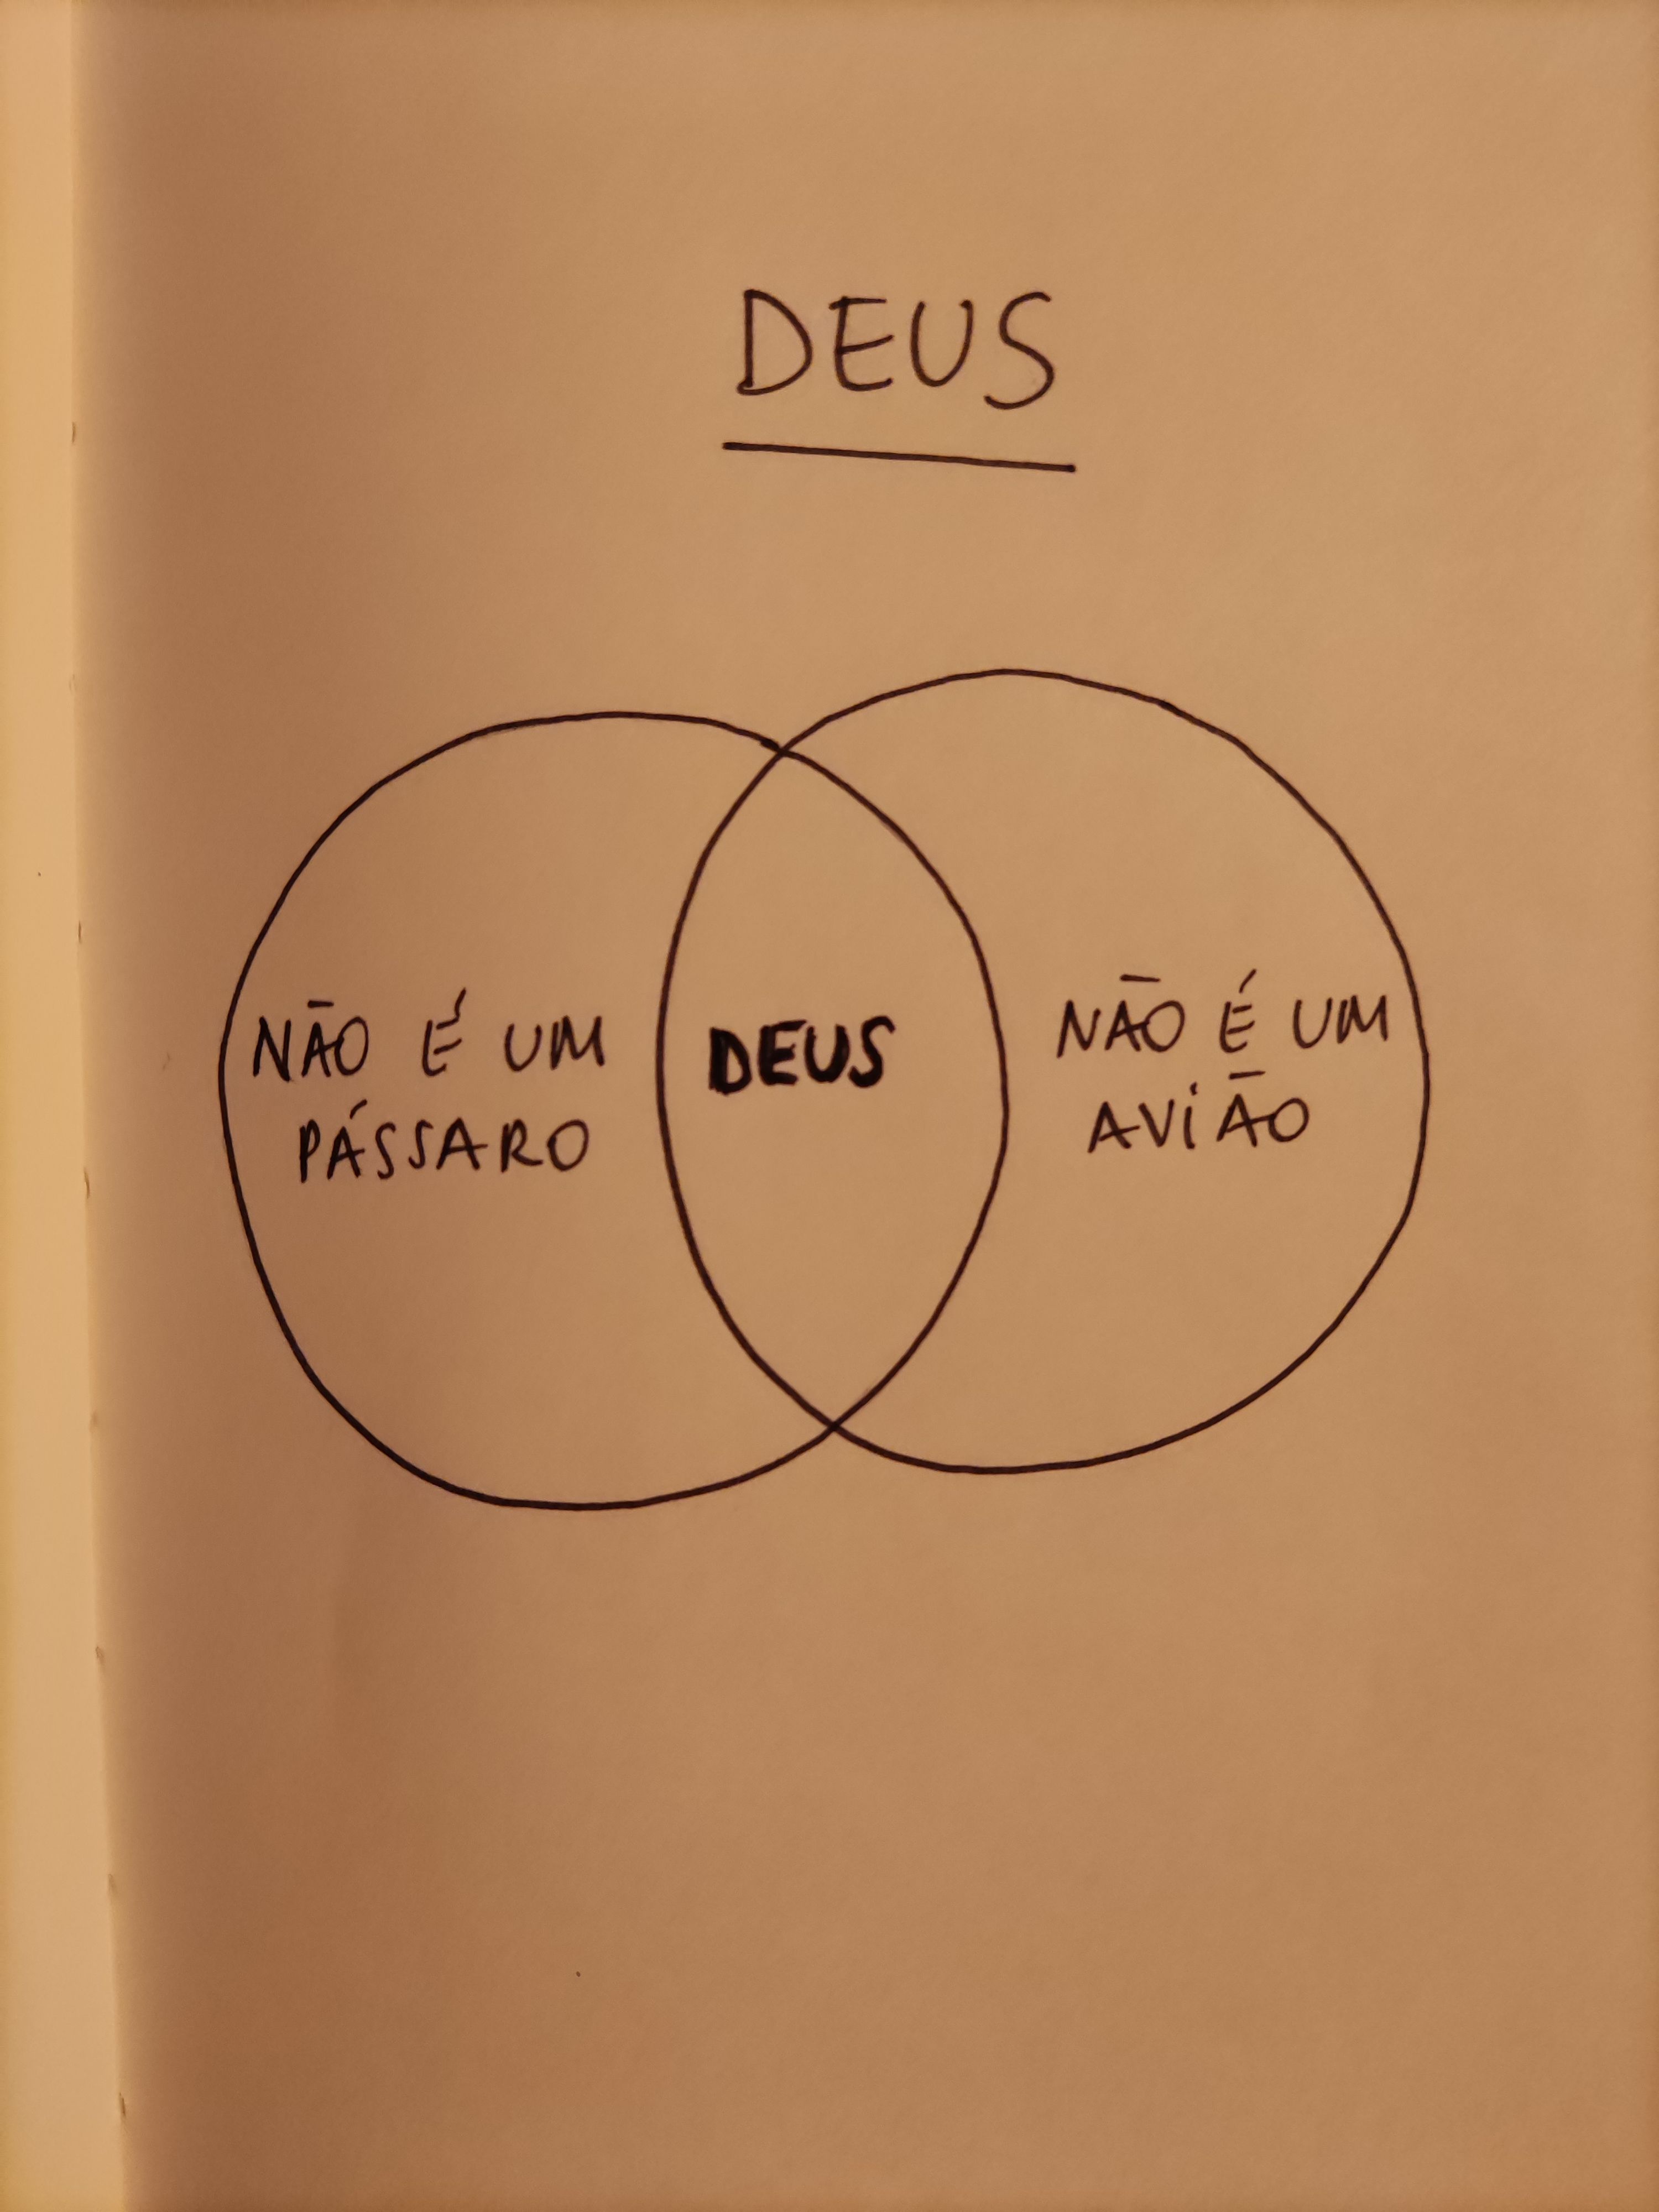 DEUS
NÃO É UM
PÁSSARO
DEUS
NÃO É UM
AVIÃO